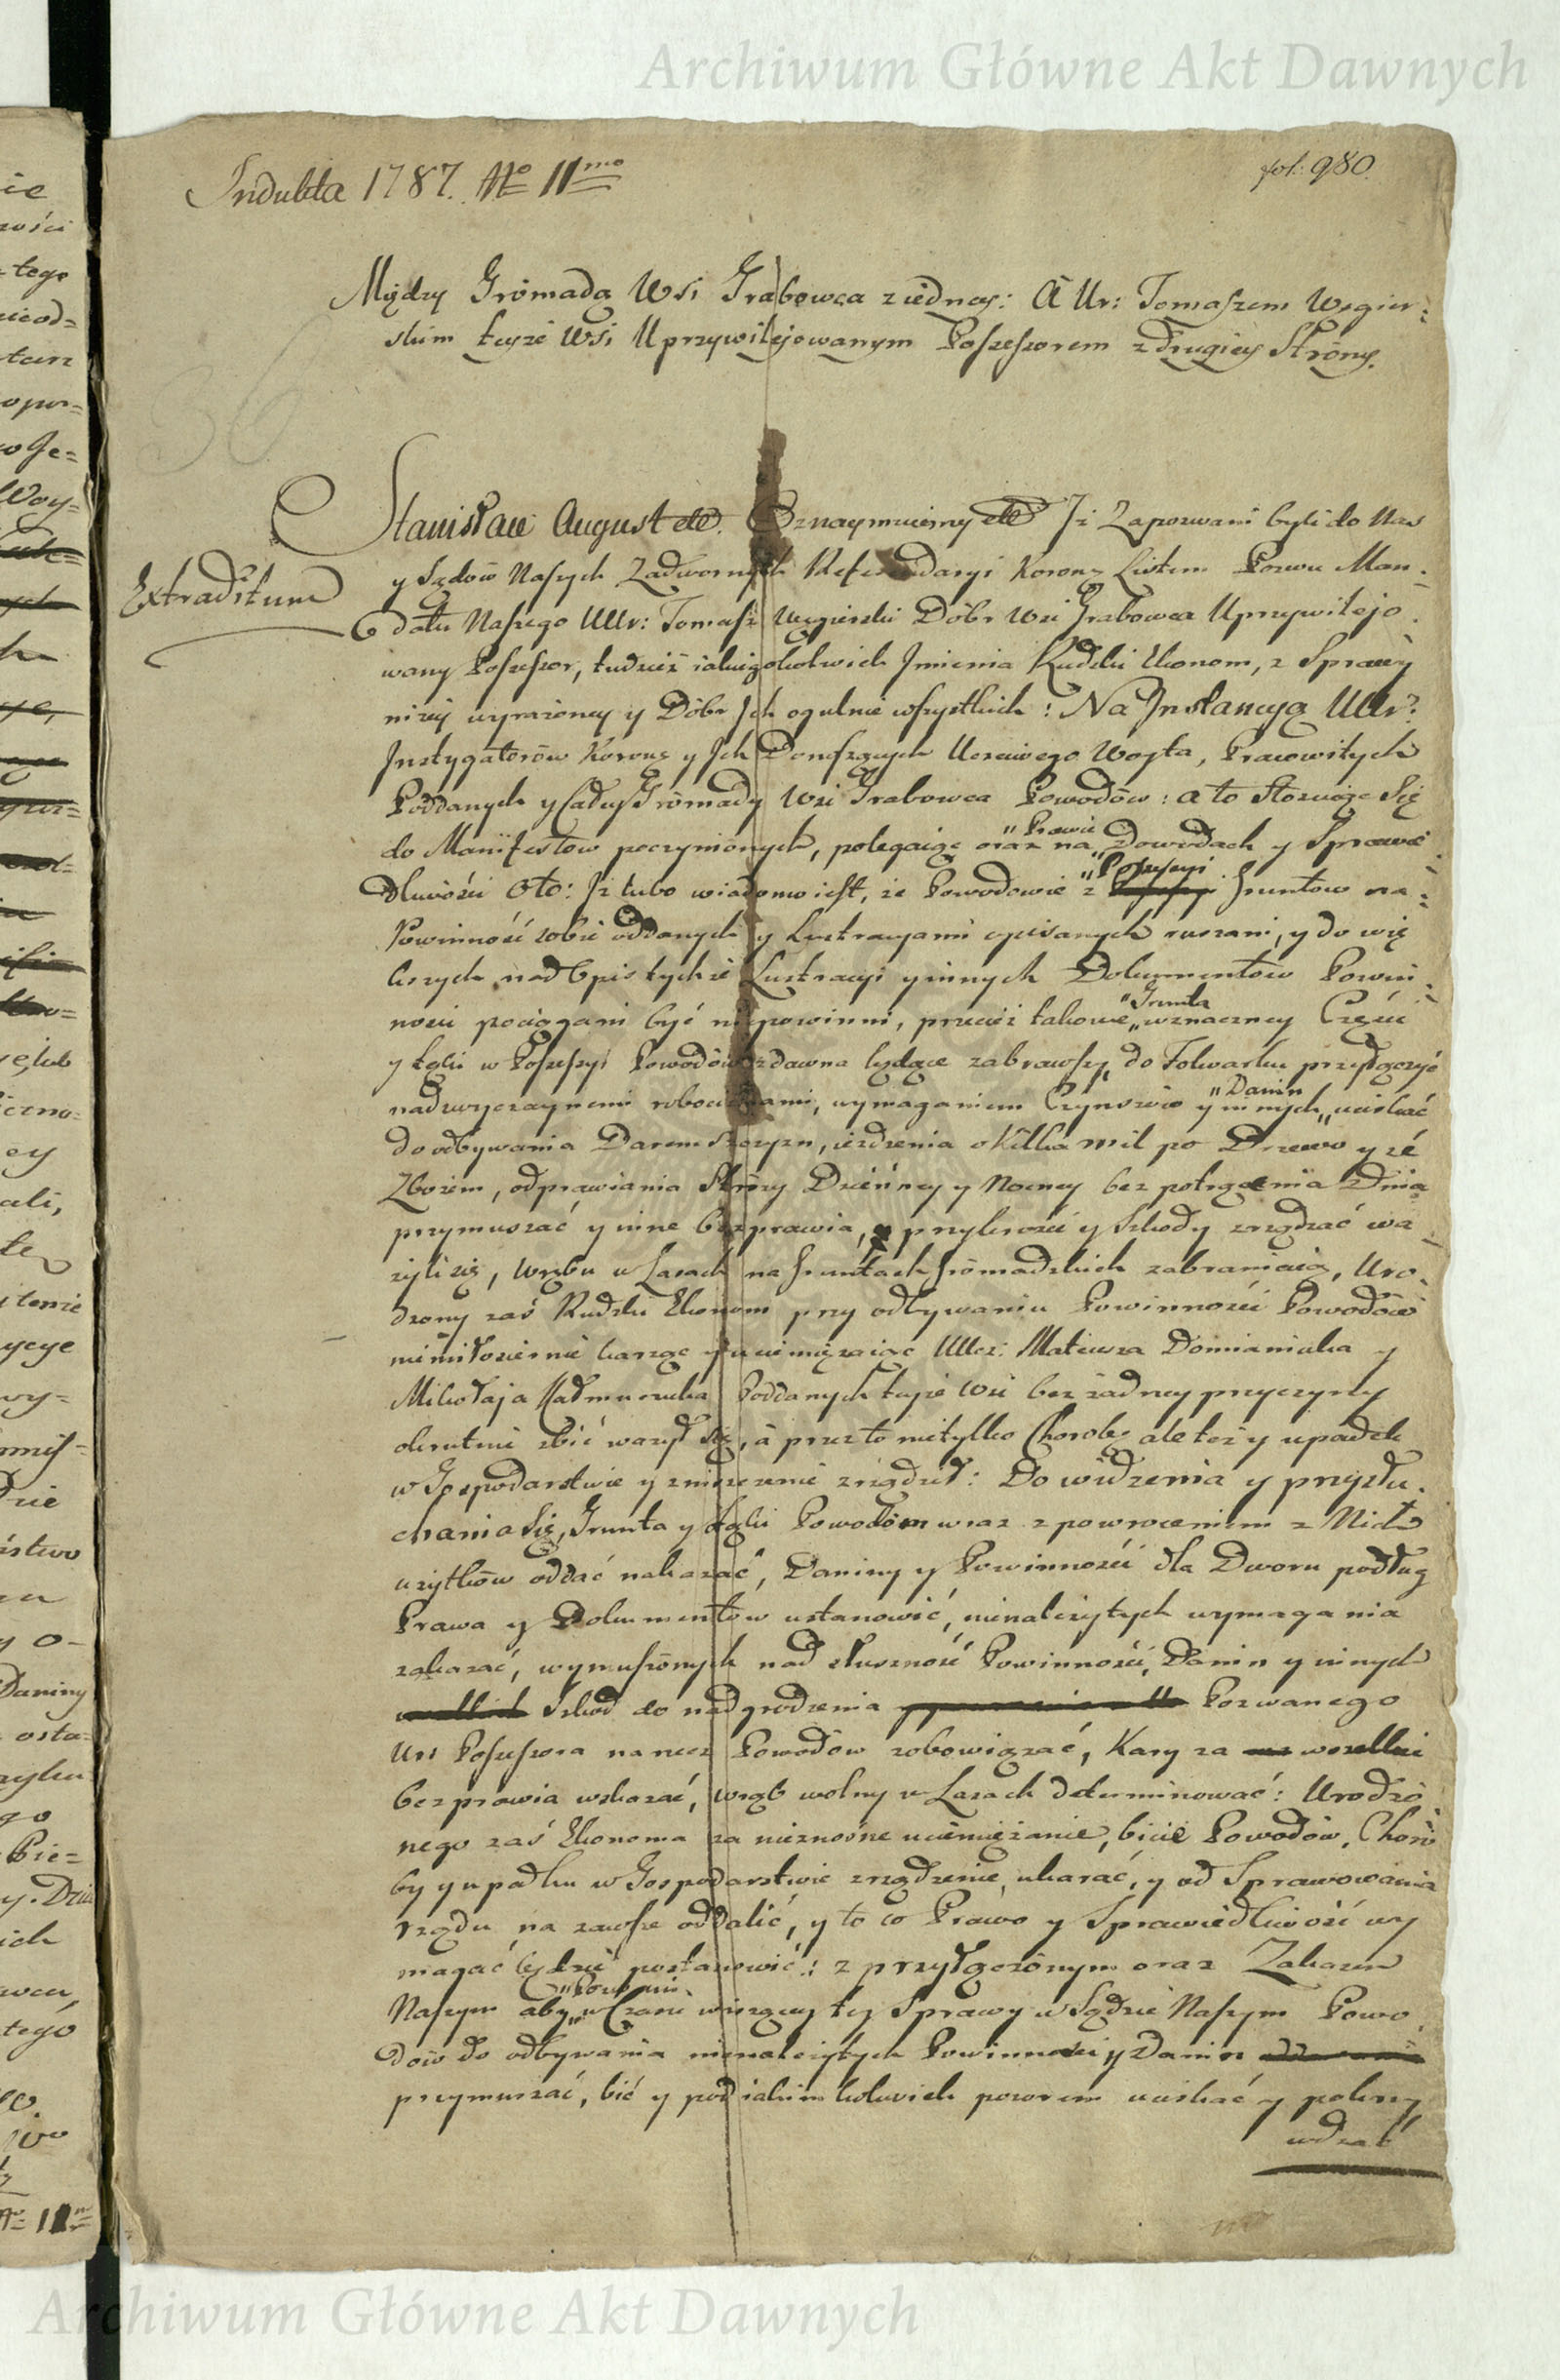 Archiwum Główne Akt Dawnych
Indukta 1787. No 11mo
fol: 980.
Między Gromadą Wsi Grabowca z iedney: A Ur: Tomaszem Węgier:
skim teyże Wsi Uprzywilejowanym Possessorem z drugiey Strony.
Stanisław August etc. Oznaymuiemy etc Iż Zapozwani byli do Nas
y Sądów Naszych Zadwornych Referendaryi Koronę Listem Pozwu Man:
Extraditum
datu Naszego UUr: Tomasz Węgierski Dóbr Wsi Grabowca Uprzywilejo.
wany Possessor, tudzież iakiegokolwiek Imienia Rudzki Ekonom, z Sprawy
niżey wyrażoney y Dóbr Ich ogulnie wszystkich: Na Instancyą UUr:
Instygatorów Koronę y Ich Donoszących Uczciwego Woyta, Pracowitych
Poddanych y Całey Gromady Wsi Grabowca Powodów: a to Stosuiąc Się
do Manifestow poczynionych, polegaiąc oraz na " Prawie " Dowodach y Sprawie
dliwości Oto: Iż lubo wiadomo iest, że Powodowie z " Possessyi Gruntow na:
Powinność sobie oddanych y Lustracyami opisanych ruszani, y do wię
kszych nad Opis tychże Lustracyi y innych Dokumentow Powin:
ności pociągani być niepowinni, przecież takowe " Grunta " w znaczney Części
y Łąki w Possessyi Powodów zdawna będące zabrawszy, do Folwarku przyłączyć
nadzwyczaynemi robociznami, wymaganiem Czynszów y innych " Danin " uciskać
do odbywania Daremszczyzn, ieżdzenia o kilka mil po Drzewo y ze
Zbożem, odprawiania Stróży Dzienney y Nocney bez potrącenia Dnia
przymuszać y inne bezprawia, y przykrości y Szkody zrządzać wa
żyli się, Wrębu w Lasach na Gruntach Gromadzkich zabraniaią, Uro.
dzony zaś Rudzki Ekonom przy odbywaniu Powinności Powodów
niemiłosiernie karząc y uciemiężaiąc UUcz: Mateusza Domianiuka y
Mikołaja Poddanych teyże Wsi bez żadney przyczyny
okrutnie zbić ważył się, a przez to nietylko Chorobę ale też y upadek
w Gospodarstwie y zniszczenie zrządził: Do widzenia y przysłu.
chania Się, Grunta y Łąki Powodom wraz z powroceniem z Nich
użytków oddać nakazać, Daniny y Powinności dla Dworu podług
Prawa y Dokumentow ustanowić, nienależytych wymagania
zakazać, wymuszonych nad słuszność Powinności, Danin y innych
Szkod do nadgrodzenia Pozwanego
Ur: Possessora na rzecz Powodow zobowiązać, Kary za wszelkie
bezprawia wskazać, wrąb wolny w Lasach determinować: Urodzo
nego zaś Ekonoma za nieznośne uciemiężanie, bicie Powodów, Choro
by y upadku w Gospodarstwie zrządzenie, ukarać, y od Sprawowania
rządu na zawsze oddalić, y to co Prawo y Sprawiedliwość wy
magać będzie postanowić: z przyłączonym oraz Zakazem
Naszym aby " Pozwani " w Czasie wiszącey tey Sprawy w Sądzie Naszym Powo
dow do odbywania nienależytych Powinności y Danin
przymuszać, bić y pod iakimkolwiek pozorem uciskać y pokrzy
wdzać
Archiwum Główne Akt Dawnych